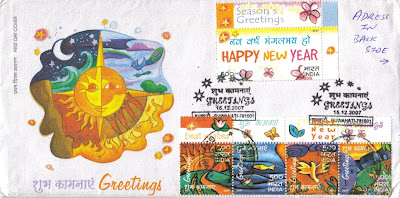 FIRST DAY COVER
प्रथम दिवस आवरण
शुभ कामनाएं Greetings
Season's
Greetings
नव वर्ष मंगलमय हो
HAPPY NEW YEAR
भारत
INDIA
ADRESS
IN
BACK
SIDE
शुभ कामनाएं
GREETINGS
15.12.2007
GUWAHATI-781001
शुभ कामनाएं
GREETINGS
15.12.2007
GUWAHATI-781001
New
Year
Greetings
500
भारत
INDIA
500
भारत
INDIA
500
भारत
INDIA
500
भारत
INDIA